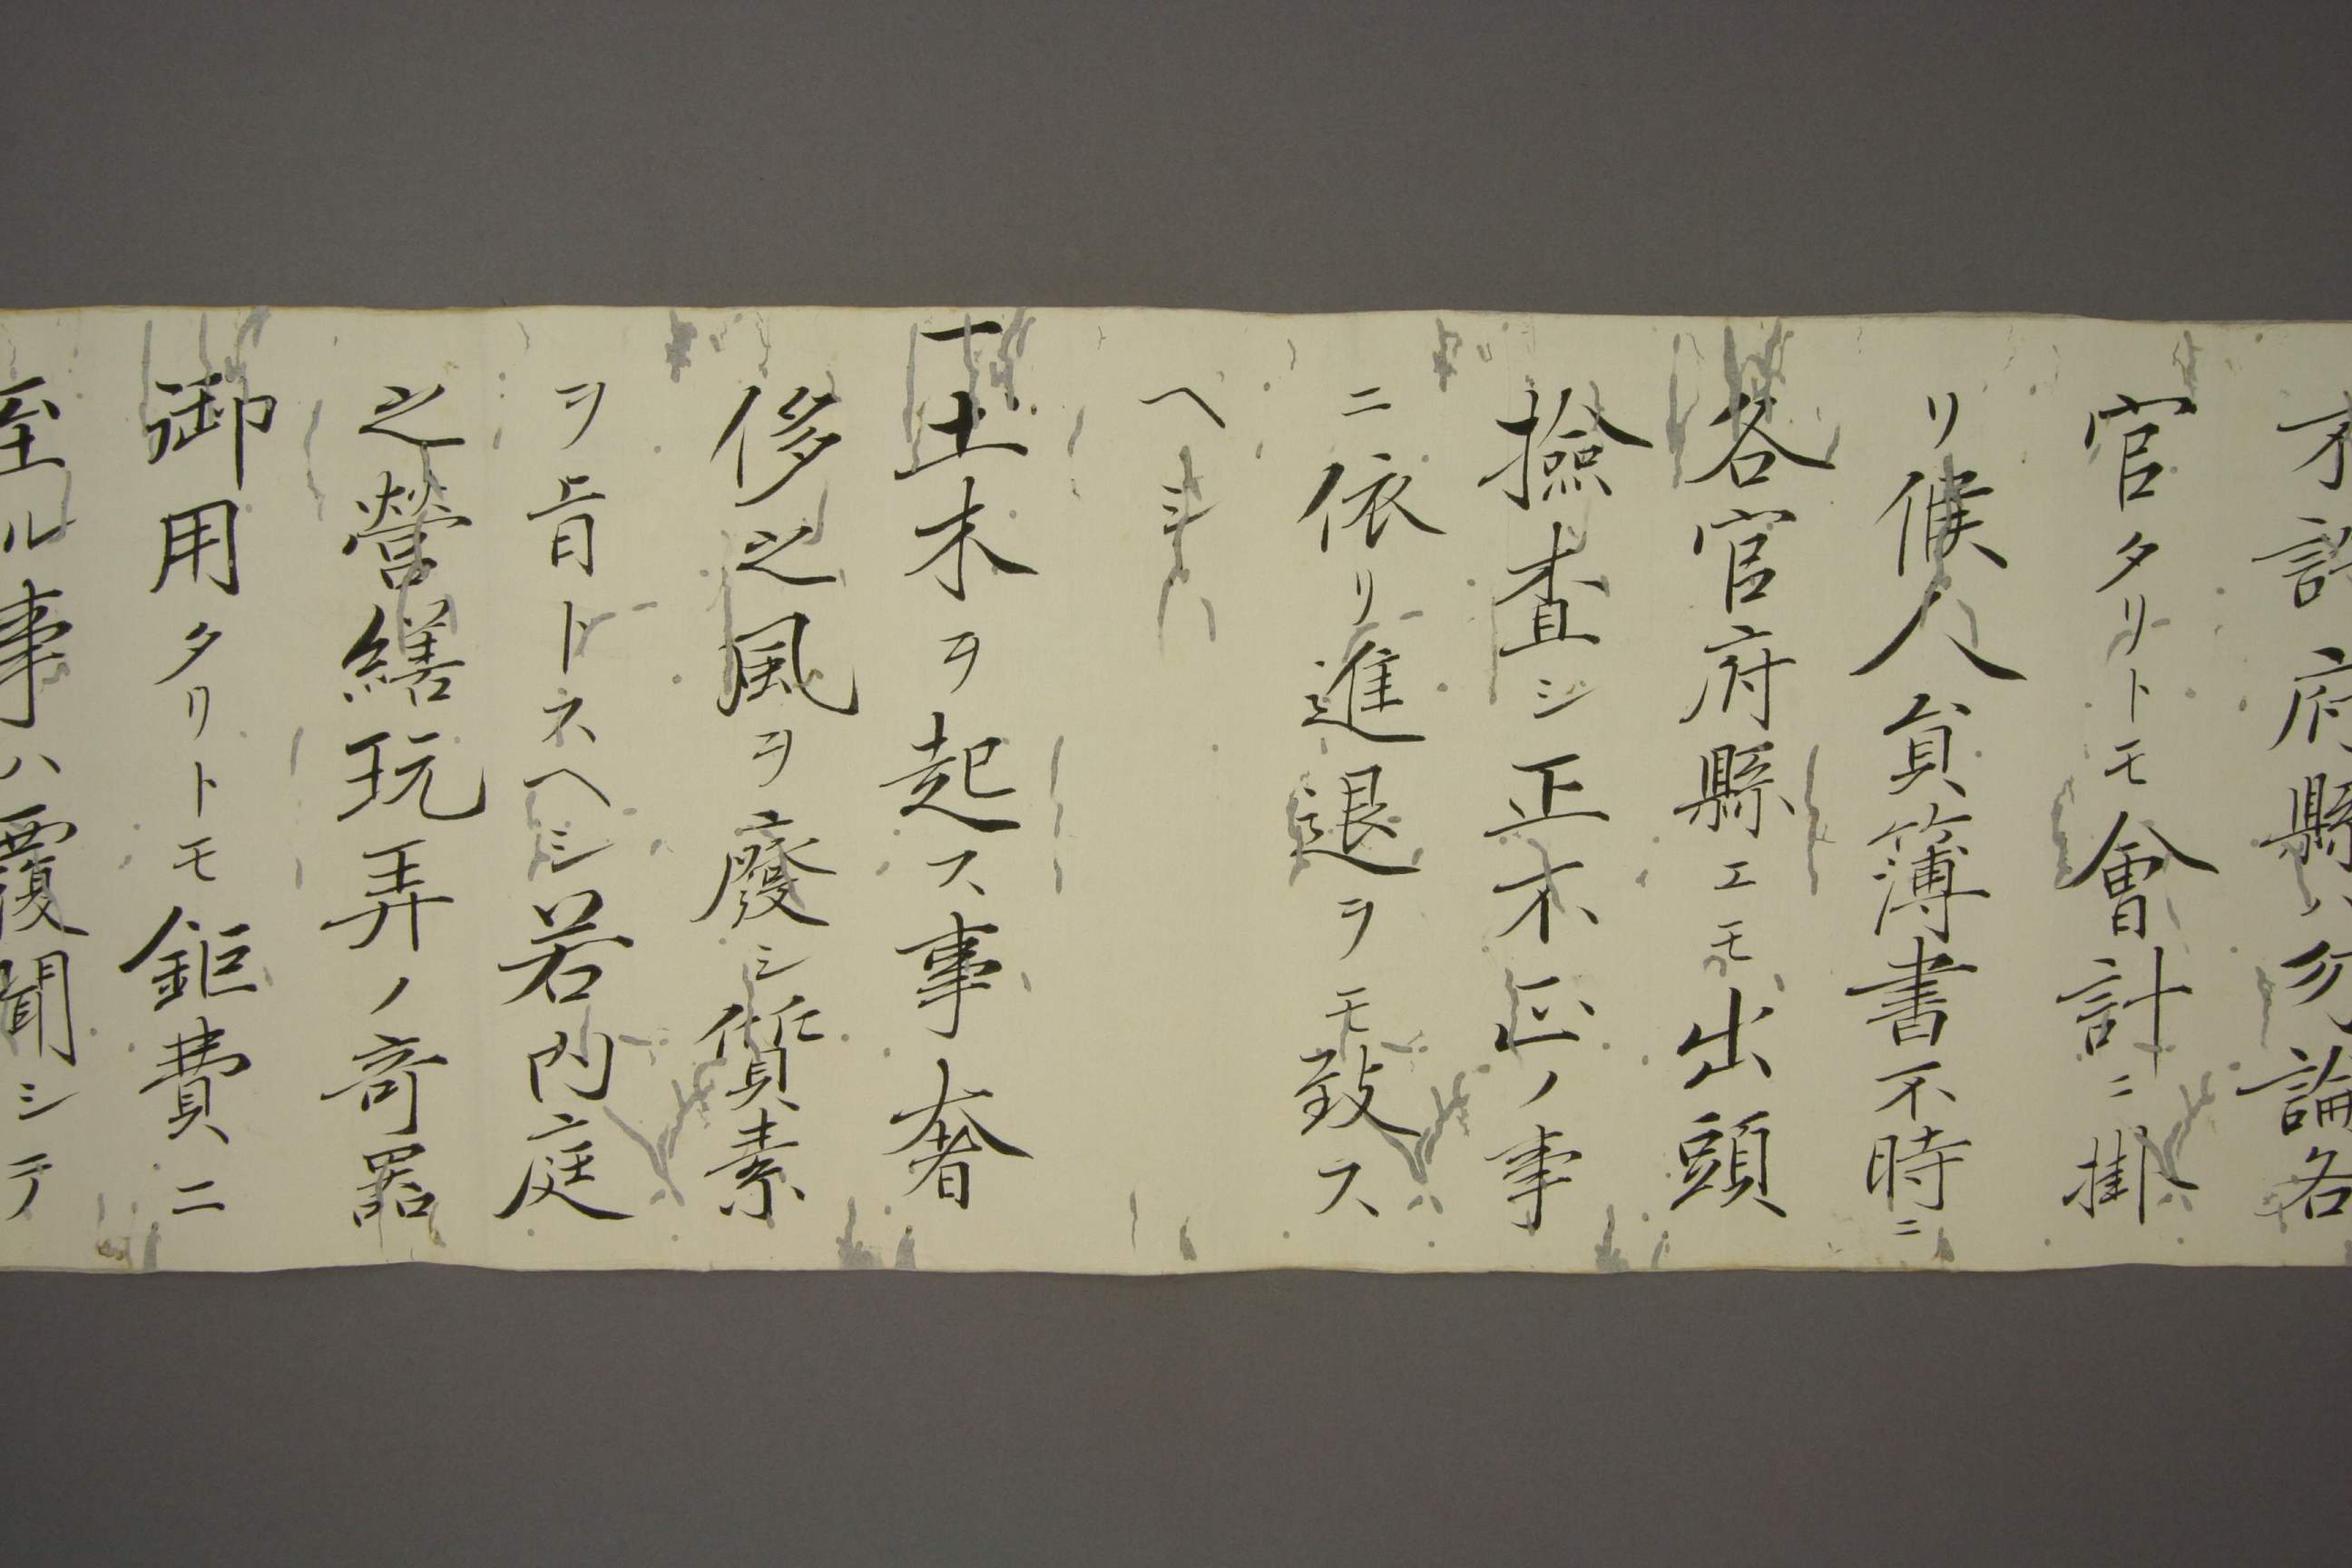 才許府縣ハ勿論各
官タリトモ會計ニ掛
リ候人員簿書不時ニ
各官府縣エモ出頭
撿査シ正不正ノ事
ニ依リ進退ヲモ致ス
ヘシ
一土木ヲ起ス事奢
侈之風ヲ廢シ質素
ヲ旨トスヘシ若内庭
之營繕玩弄ノ奇器
御用タリトモ鉅費ニ
至ル事ハ覆聞シテ